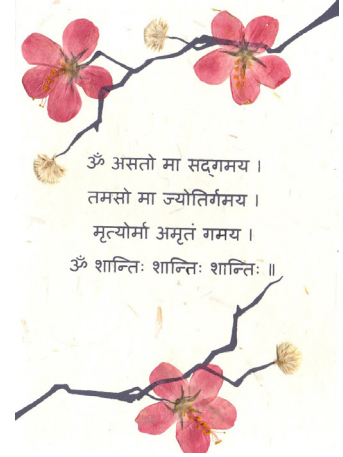 ॐ असतो मा सद्‌गमय ।
तमसो मा ज्योतिर्गमय ।
मृत्योर्मा अमृतं गमय ।
ॐ शान्तिः शान्तिः शान्तिः ॥